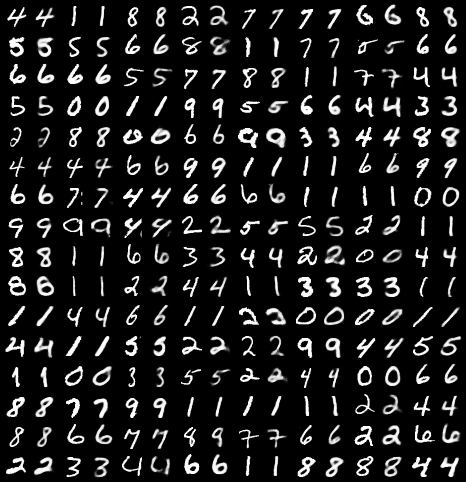 4 4 1 1 8 8 2 2 7 7 7 7 6 6 8 8
5 5 5 5 6 6 8 8 1 1 7 7 5 5 6 6
6 6 6 6 5 5 7 7 8 8 1 1 7 7 4 4
5 5 0 0 1 1 9 9 5 5 6 6 4 4 3 3
2 2 8 8 0 0 6 6 9 9 3 3 4 4 8 8
4 4 4 4 6 6 9 9 1 1 1 1 6 6 9 9
6 6 7 7 4 4 6 6 6 6 1 1 1 1 0 0
9 9 9 9 4 4 2 2 5 5 5 5 2 2 1 1
8 8 1 1 6 6 3 3 4 4 2 2 0 0 4 4
8 8 1 1 2 2 4 4 1 1 3 3 3 3 1 1
1 1 4 4 6 6 1 1 2 2 0 0 0 0 1 1
4 4 1 1 5 5 2 2 2 2 9 9 4 4 5 5
1 1 0 0 3 3 5 5 2 2 4 4 0 0 6 6
8 8 7 7 9 9 1 1 1 1 1 1 2 2 4 4
8 8 6 6 7 7 8 9 7 7 6 6 2 2 6 6
2 2 3 3 4 4 6 6 1 1 8 8 8 8 4 4